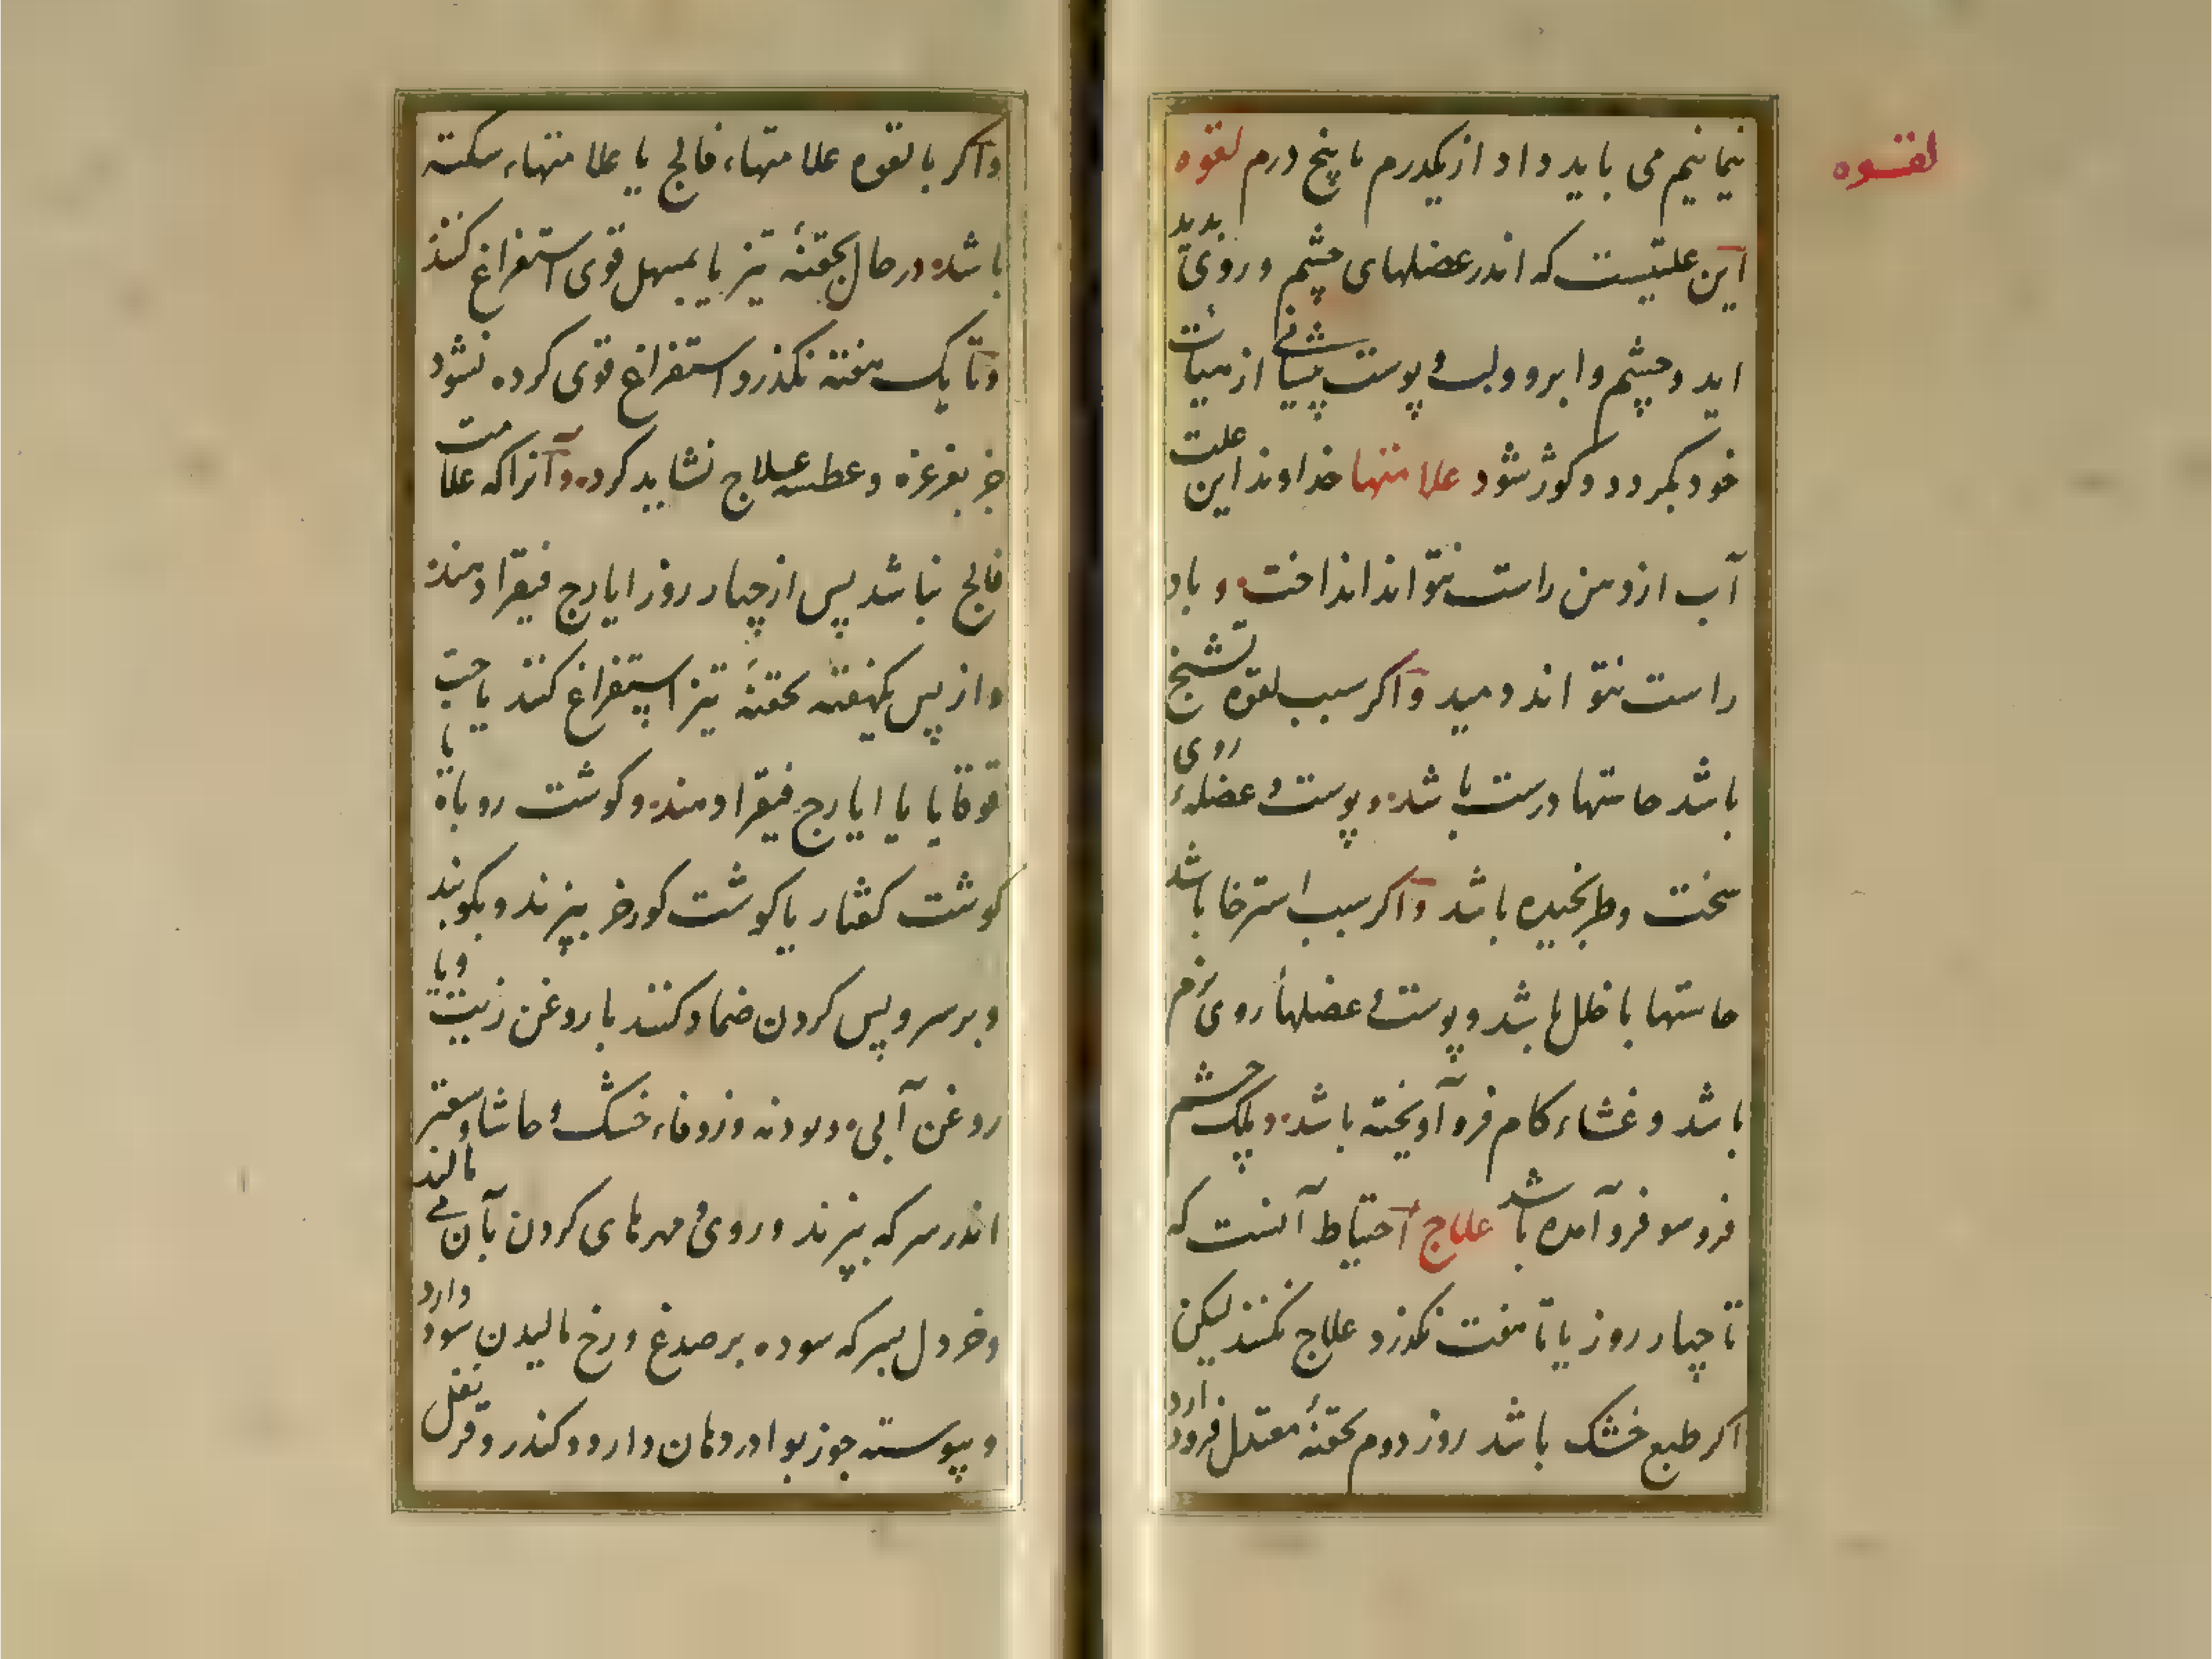 لقوه
نیمانیم می باید داد از یکدرم تا پنج درم لقوه
این علتیست که اندر عضلهای چشم و روی پدید
اید و چشم و ابرو و لب و پوست پیشانی از هیأت
خود بگردد و کوژ شود علامتها خداوند این علت
آب از دهن راست نتواند انداخت و باد
راست نتواند دمید و اکر سبب لقوه تشنج
باشد حاستها درست باشد و پوست و عضلهء روی
سخت و طرنجیده باشد و اکر سبب استرخا باشد
حاستها با خلل باشد و پوست و عضلهاء روی نرم
باشد و غشاء کام فرو آویخته باشد و پلک چشم
فروسو فرو آمده باشد علاج احتیاط آنست که
تا چهار روز یا تا هفت نکذرد علاج نکنند لیکن
اکر طبع خشک باشد روز دوم بحقنهٔ معتدل فرود ارد
و اکر با لقوه علامتهاء فالج یا علامتهاء سکته
باشد در حال بحقنهٔ تیز یا بمسهل قوی استفراغ کنند
و تا یک هفته نکذرد و استفراغ قوی کرده نشود
جز بغرغره و عطسه علاج نشاید کرد و آنرا که علامت
فالج نباشد پس از چهار روز ایارج فیقرا دهند
و از پس یکهفته بحقنهٔ تیز استفراغ کنند یا حب
قوقایا یا ایارج فیقرا دهند و کوشت روباه یا
کوشت کفتار یا کوشت کورخر بپزند و بکوبند
و بر سر و پس کردن ضماد کنند با روغن زیت و یا
روغن آبی و پودنه و زوفاء خشک و حاشا و سعتر
اندر سرکه بپزند و روی و مهرهای کردن بآن می مالند
و خردل بسرکه سوده بر صدغ و رخ مالیدن سود دارد
و پیوسته جوز بوا در دهان دارد و کندر و قرنفل